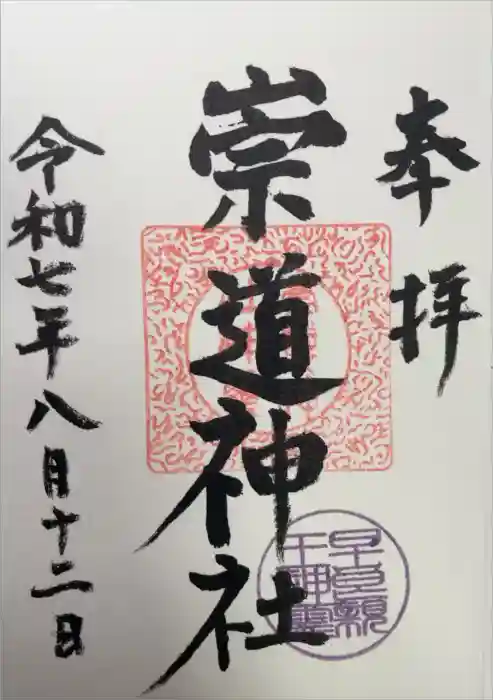 奉拝
崇道神社
令和七年八月十二日
早良親王神霊